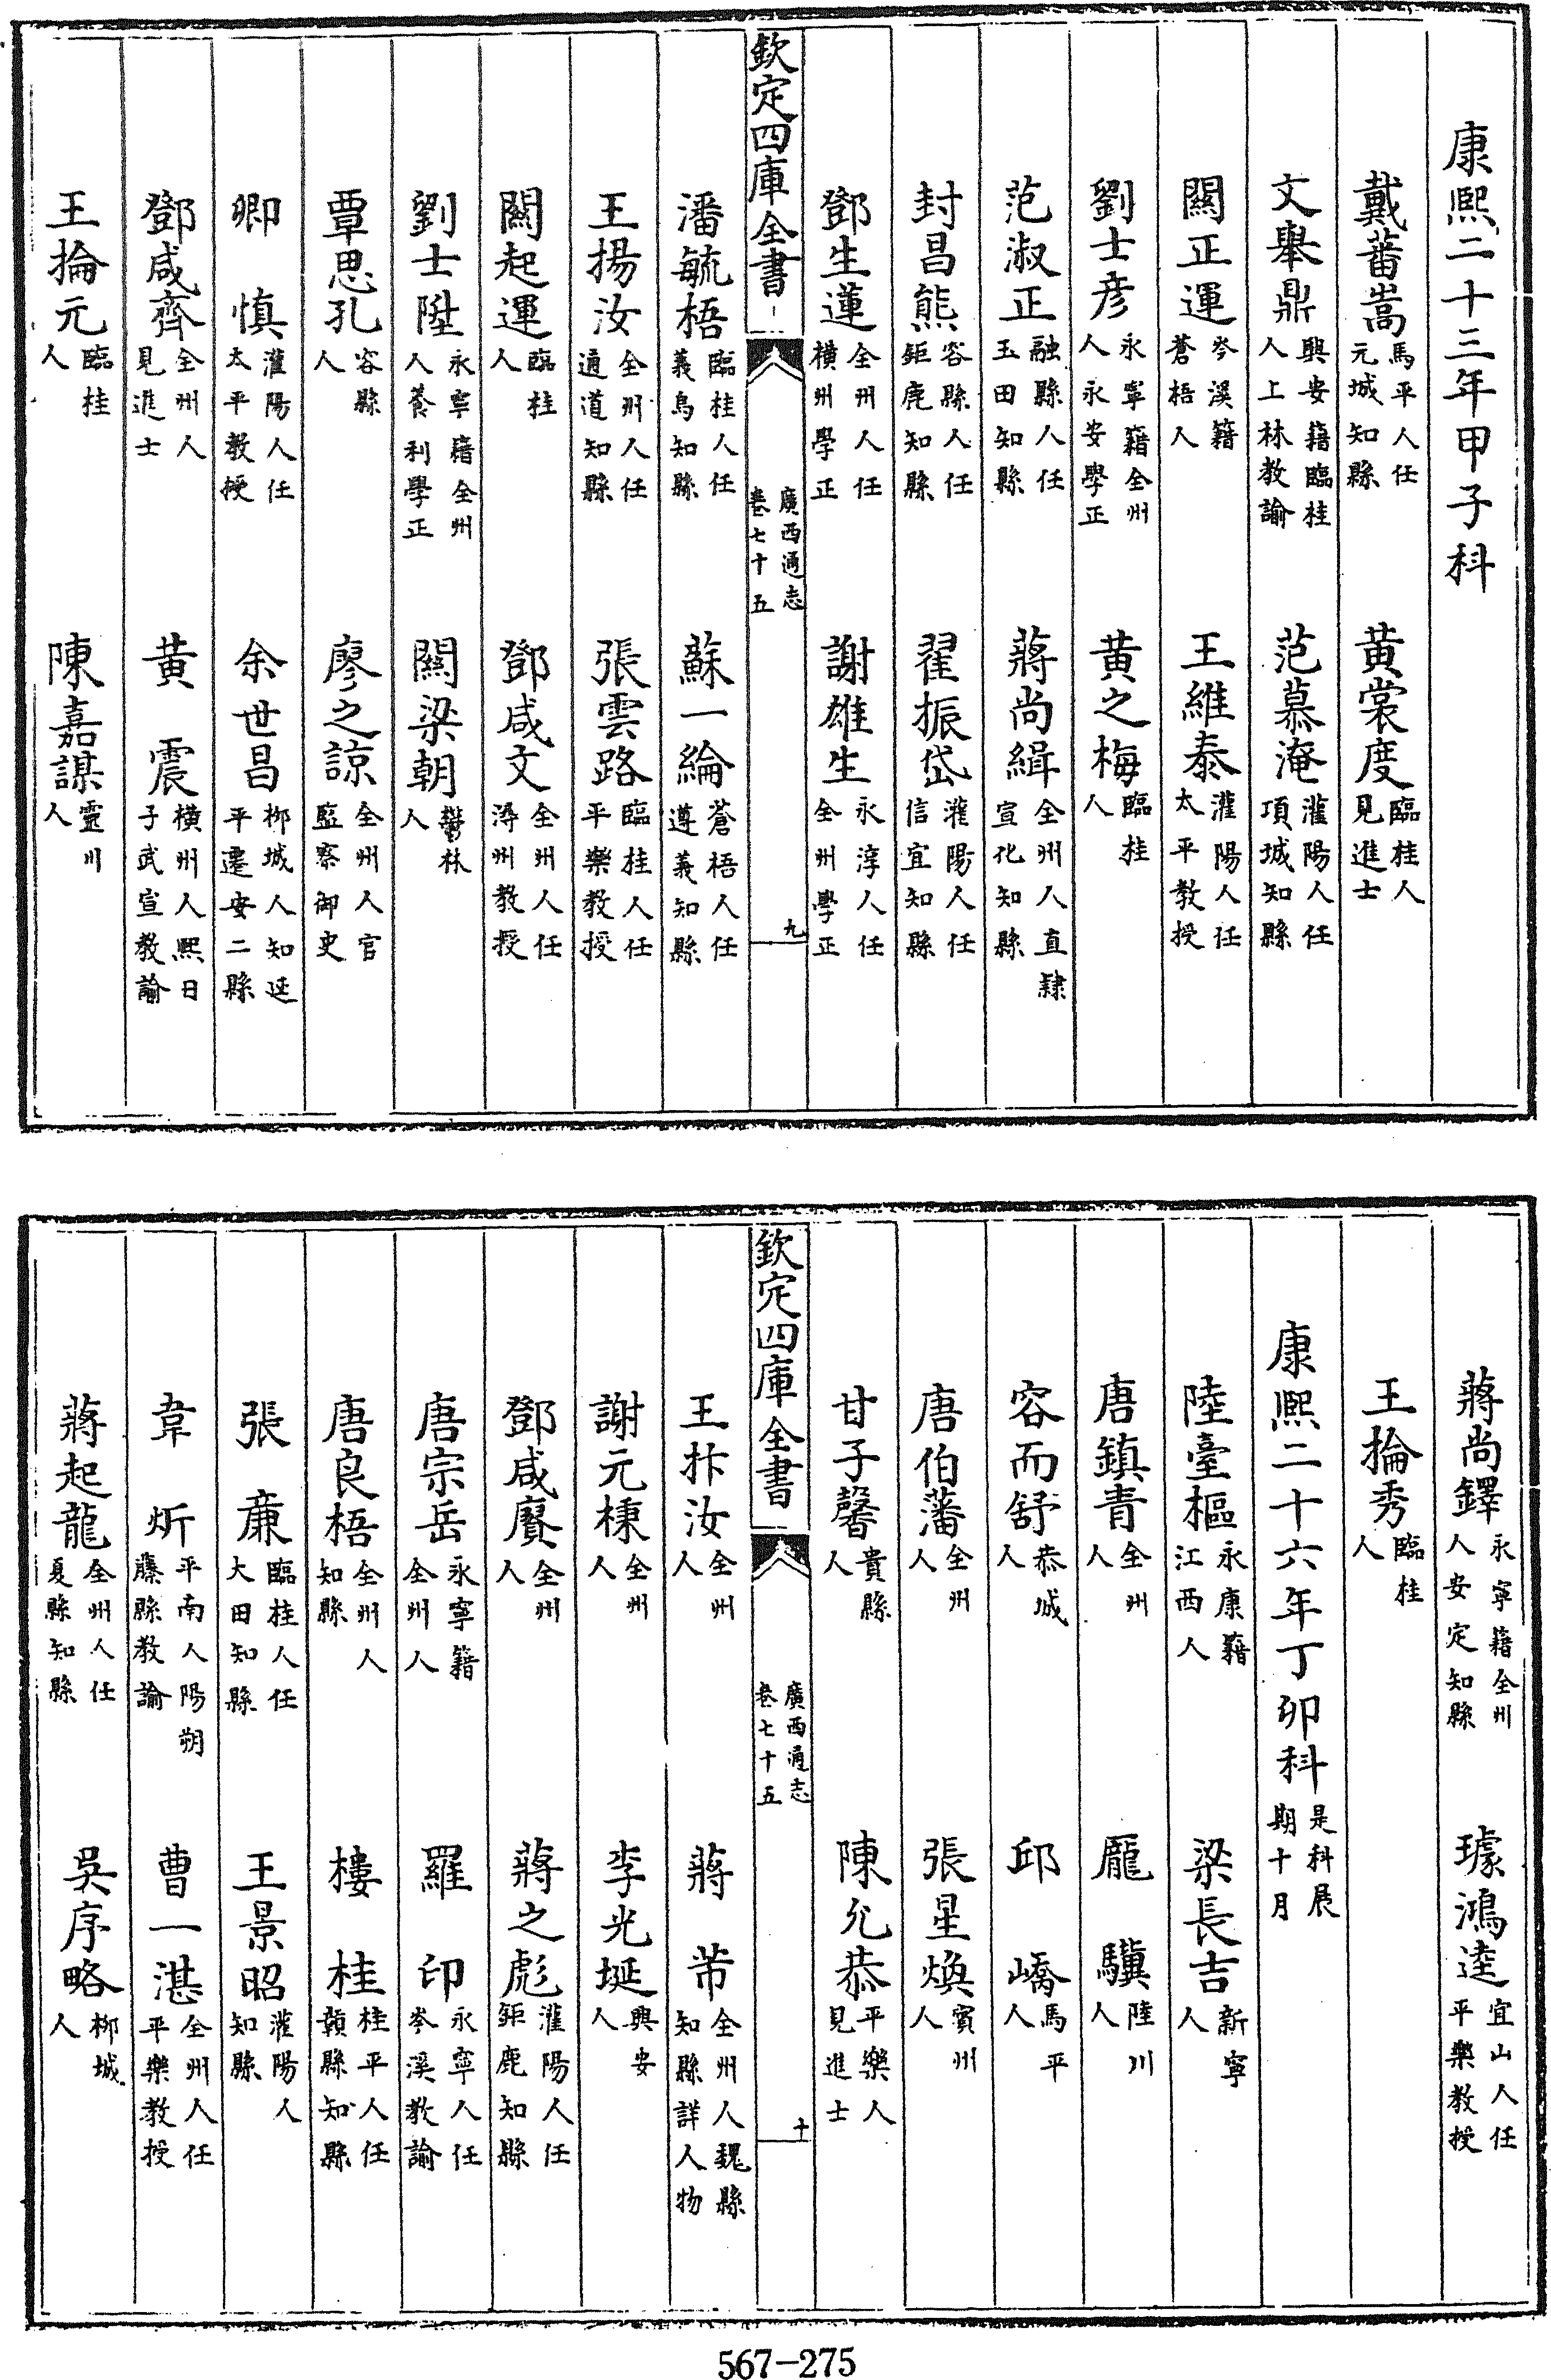 康熙二十三年甲子科
戴蕃嵩馬平人任元城知縣 黄裳度臨桂人見進士
文舉鼎興安籍臨桂人上林教諭 范慕淹灌陽人任項城知縣
關正運岑溪籍蒼梧人 王維泰灌陽人任太平教授
劉士彦永寧籍全州人永安學正 黄之梅臨桂人
范淑正融縣人任玉田知縣 蔣尚緝全州人直隸宣化知縣
封昌熊容縣人任鉅鹿知縣 翟振岱灌陽人任信宜知縣
鄧生蓮全州人任横州學正 謝雄生永淳人任全州學正
欽定四庫全書 廣西通志卷七十五 九
潘毓梧臨桂人任義烏知縣 蘇一綸蒼梧人任遵義知縣
王揚汝全州人任通道知縣 張雲路臨桂人任平樂教授
關起運臨桂人 鄧咸文全州人任潯州教授
劉士陞永寧籍全州人養利學正 關梁朝鬱林人
覃思孔容縣人 廖之諒全州人官監察御史
卿慎灌陽人任太平教授 余世昌柳城人知延平遷安二縣
鄧咸齊全州人見進士 黄震横州人熙日子武宣教諭
王掄元臨桂人 陳嘉謀靈川人
蔣尚鐸永寧籍全州人安定知縣 璩鴻逵宜山人任平樂教授
王掄秀臨桂人
康熙二十六年丁卯科是科展期十月
陸臺樞永康籍江西人 梁長吉新寧人
唐鎮青全州人 龎驥陸川人
容而舒恭城人 邱嶠馬平人
唐伯藩全州人 張星煥賓州人
甘子馨貴縣人 陳允恭平樂人見進士
欽定四庫全書 廣西通志卷七十五 十
王抃汝全州人 蔣芾全州人魏縣知縣詳人物
謝元棟全州人 李光埏興安人
鄧咸賡全州人 蔣之彪灌陽人任鉅鹿知縣
唐宗岳永寧籍全州人 羅印永寧人任岑溪教諭
唐良梧全州人知縣 樓桂桂平人任贛縣知縣
張亷臨桂人任大田知縣 王景昭灌陽人知縣
韋炘平南人陽朔籐縣教諭 曹一湛全州人任平樂教授
蔣起龍全州人任夏縣知縣 吳序略柳城人
567-275